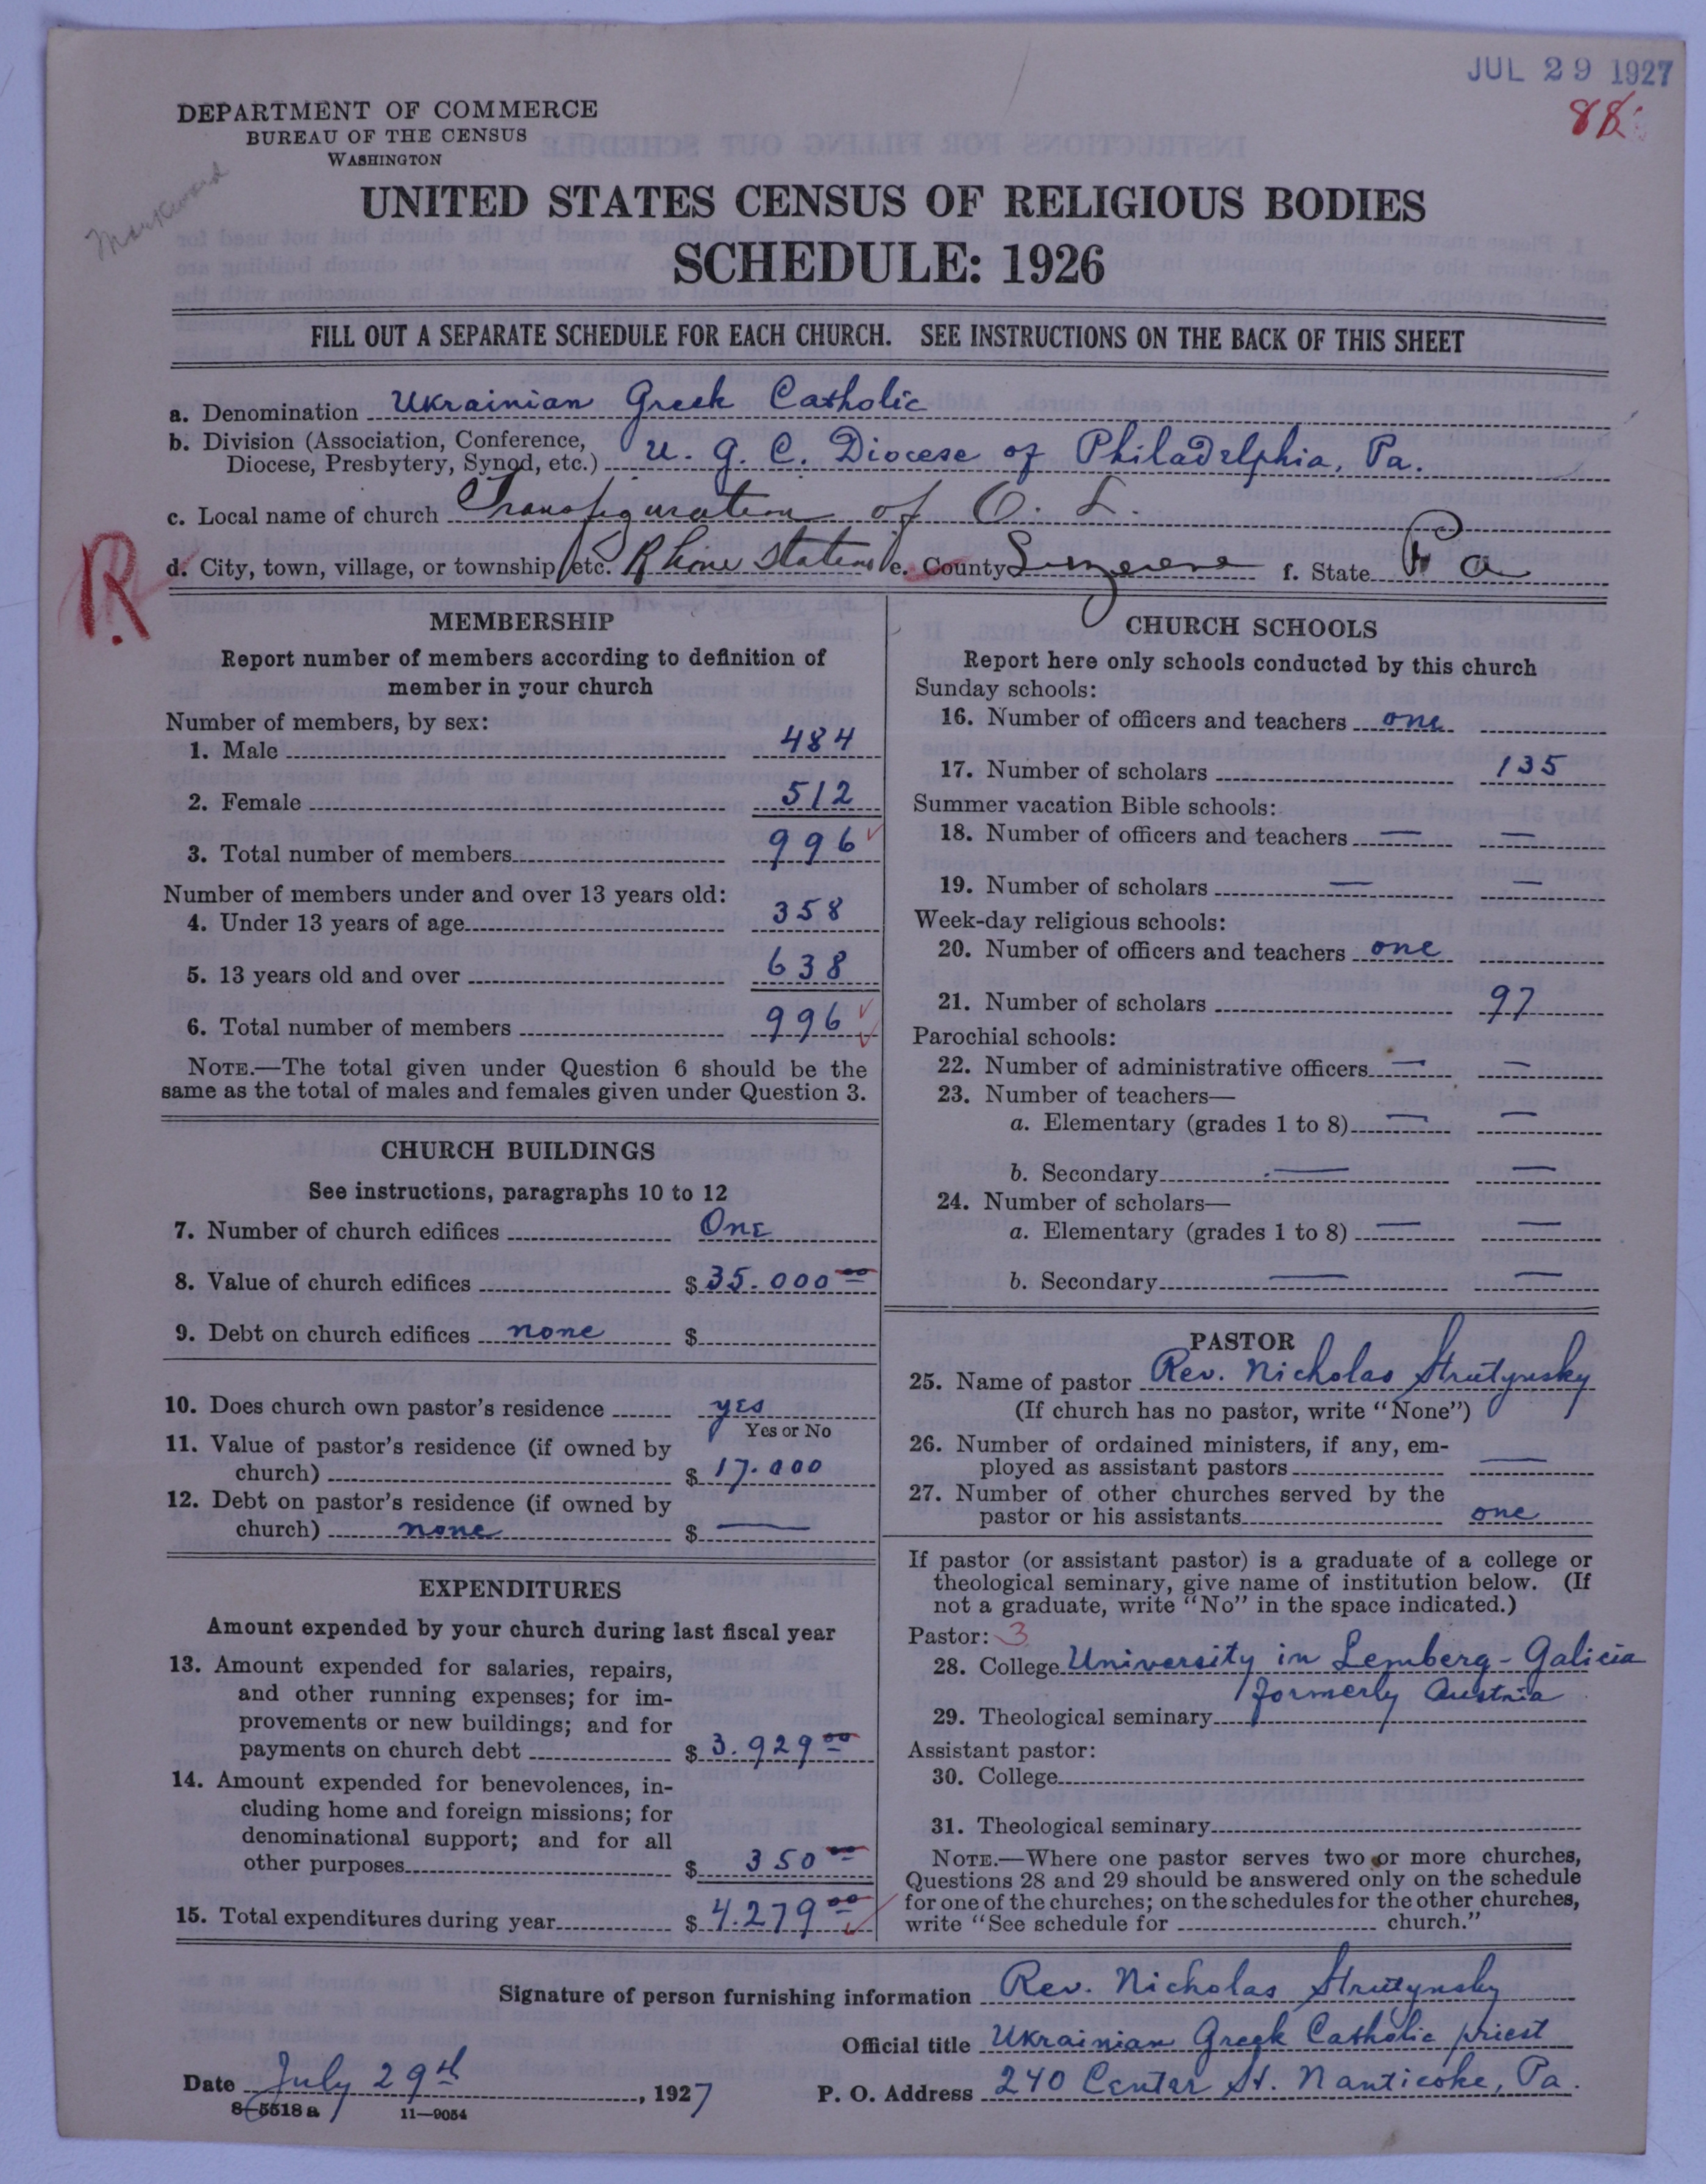 JUL 29 1927
DEPARTMENT OF COMMERCE
BUREAU OF THE CENSUS
WASHINGTON
UNITED STATES CENSUS OF RELIGIOUS BODIES
SCHEDULE: 1926
FILL OUT A SEPARATE SCHEDULE FOR EACH CHURCH. SEE INSTRUCTIONS ON THE BACK OF THIS SHEET
a. Denomination Ukrainian Greek Catholic
b. Division (Association, Conference,
Diocese, Presbytery, Synod, etc.) U. G. C. Diocese of Philadelphia, Pa.
c. Local name of church Transfiguration of O. L.
R.
d. City, town, village, or township, etc. Rhone Station e. County Luzerene f. State Pa
MEMBERSHIP
Report number of members according to definition of
member in your church
Number of members, by sex:
1. Male 484
2. Female 512
3. Total number of members 996
Number of members under and over 13 years old:
4. Under 13 years of age 358
5. 13 years old and over 638
6. Total number of members 996
NOTE.—The total given under Question 6 should be the
same as the total of males and females given under Question 3.
CHURCH BUILDINGS
See instructions, paragraphs 10 to 12
7. Number of church edifices One
8. Value of church edifices $ 35.000 00
9. Debt on church edifices none $
10. Does church own pastor's residence yes
Yes or No
11. Value of pastor's residence (if owned by
church) $ 17.000
12. Debt on pastor's residence (if owned by
church) none $ —
EXPENDITURES
Amount expended by your church during last fiscal year
13. Amount expended for salaries, repairs,
and other running expenses; for im-
provements or new buildings; and for
payments on church debt $ 3.929 00
14. Amount expended for benevolences, in-
cluding home and foreign missions; for
denominational support; and for all
other purposes $ 350 00
15. Total expenditures during year $ 4.279 00
CHURCH SCHOOLS
Report here only schools conducted by this church
Sunday schools:
16. Number of officers and teachers one
17. Number of scholars 135
Summer vacation Bible schools:
18. Number of officers and teachers — —
19. Number of scholars — —
Week-day religious schools:
20. Number of officers and teachers one
21. Number of scholars 97
Parochial schools:
22. Number of administrative officers — —
23. Number of teachers—
a. Elementary (grades 1 to 8) — —
b. Secondary — —
24. Number of scholars—
a. Elementary (grades 1 to 8) — —
b. Secondary — —
PASTOR
25. Name of pastor Rev. Nicholas Strutynsky
(If church has no pastor, write "None")
26. Number of ordained ministers, if any, em-
ployed as assistant pastors —
27. Number of other churches served by the
pastor or his assistants one
If pastor (or assistant pastor) is a graduate of a college or
theological seminary, give name of institution below. (If
not a graduate, write "No" in the space indicated.)
Pastor: 3
28. College University in Lemberg - Galicia
formerly Austria
29. Theological seminary
Assistant pastor:
30. College
31. Theological seminary
NOTE.—Where one pastor serves two or more churches,
Questions 28 and 29 should be answered only on the schedule
for one of the churches; on the schedules for the other churches,
write "See schedule for church."
Signature of person furnishing information Rev. Nicholas Strutynsky
Official title Ukrainian Greek Catholic priest
Date July 29th, 1927 P. O. Address 240 Center St. Nanticoke, Pa.
8-5518 a 11—9054